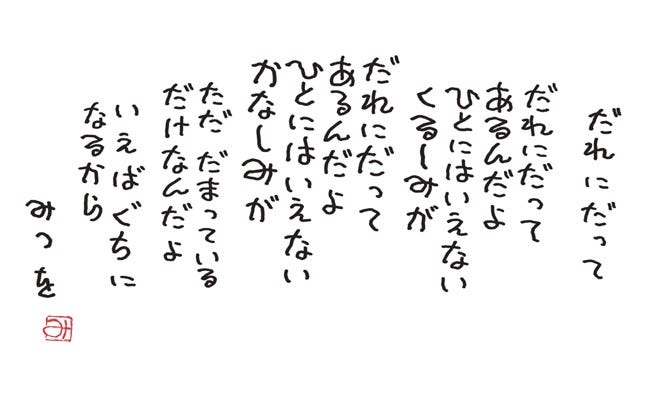 だれにだって
だれにだって
あるんだよ
ひとにはいえない
くるしみが
だれにだって
あるんだよ
ひとにはいえない
かなしみが
ただ だまっている
だけなんだよ
いえばぐちに
なるから
みつを
み